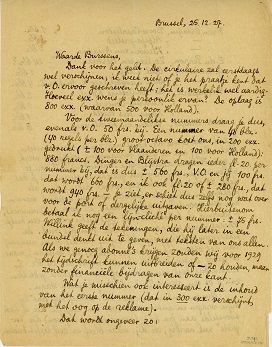 Brussel, 25.12.27.
Waarde Burssens,
Dank voor het geld. De circulaire zal eerstdaags
wel verschijnen, ik weet niet of je het praatje kent dat
v.O. ervoor geschreven heeft; het is werkelijk wel aardig.
Hoeveel exx. wens je persoonlik ervan? De oplaag is
800 exx. (waarvan 500 voor Holland).
Voor de tweemaandelikse nummers draag je dus,
evenals v.O. 50 frs. bij. Een nummer van 48 blz.
(40 regels per blz.) groot-octavo kost ons, in 200 exx.
gedrukt (± 100 voor Vlaanderen, en 100 voor Holland):
880 francs. Singer en Blijstra dragen ieder fl. 20. per
nummer bij, dat is dus ± 560 frs., V.O. en jij 100 frs.
dat wordt 660 frs.; en ik ook fl. 20 of ± 280 frs., dat
wordt 940 frs. Je ziet, er schiet dus zelfs nog wat over
voor de port of dergelijke uitgaven. Hierbuitenom
betaal ik nog een lijncliché per nummer: ± 75 frs.
Willink geeft de tekeningen, die hij later in een
bundel denkt uit te geven, met teksten van ons allen.
Als we genoeg abonné's krijgen zouden wij voor 1929
het tijdschrift kunnen uitbreiden of zo houden, maar
zonder financiële bijdragen van onze kant.
Wat je misschien ook interesseert is de inhoud
van het eerste nummer (dat in 300 exx. verschijnt
met het oog op de reklame).
Dat wordt ongeveer zo: